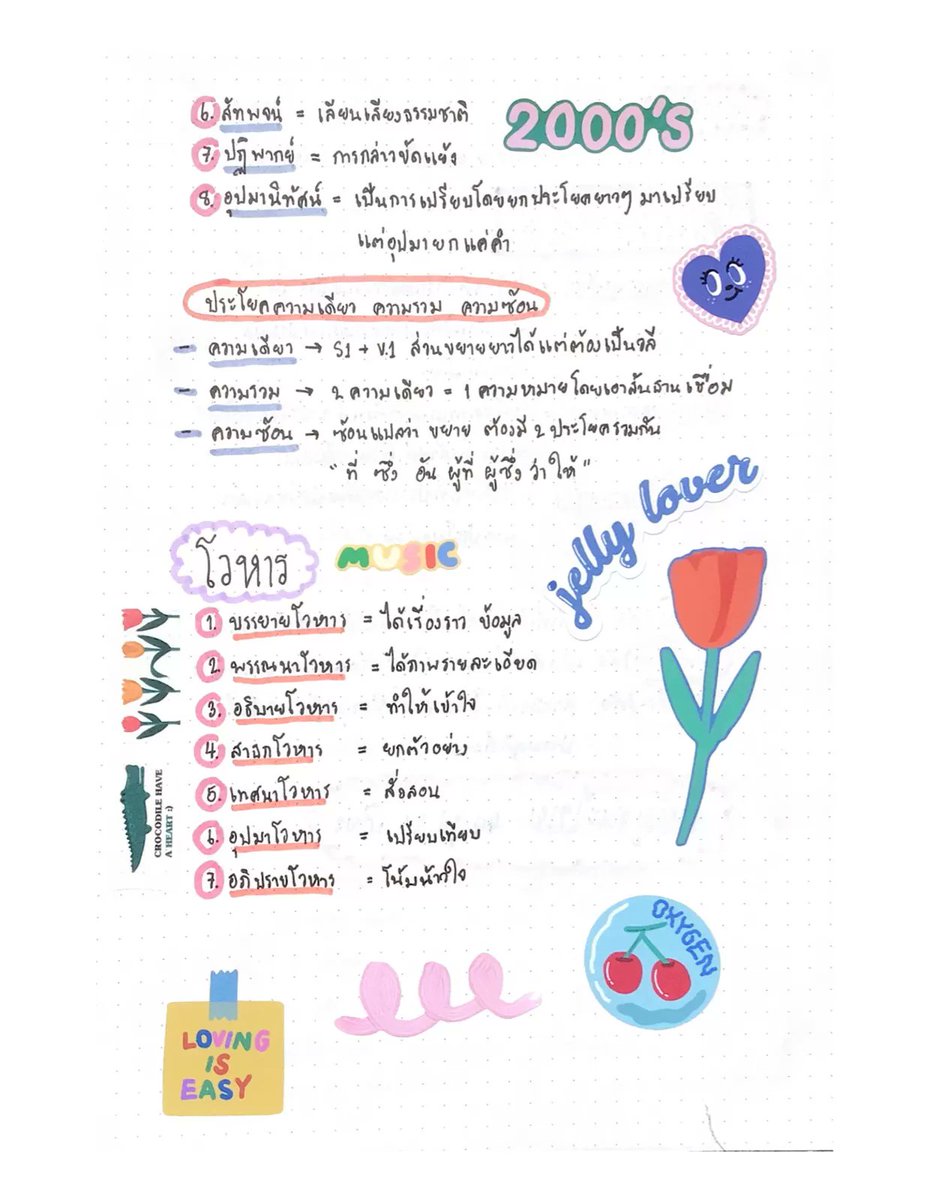 6. สัทพจน์ = เลียนเสียงธรรมชาติ
2000's
7. ปฏิพากย์ = การกล่าวขัดแย้ง
8. อุปมานิทัศน์ = เป็นการเปรียบโดยยกประโยคยาวๆ มาเปรียบ
แต่อุปมายกแค่คำ
ประโยคความเดียว ความรวม ความซ้อน
- ความเดียว → S1 + V.1 ส่วนขยายยาวได้แต่ต้องเป็นวลี
- ความรวม → 2 ความเดียว = 1 ความหมายโดยเอาสันธานเชื่อม
- ความซ้อน → ซ้อนแปลว่า ขยาย ต้องมี 2 ประโยครวมกัน
" ที่ ซึ่ง อัน ผู้ที่ ผู้ซึ่ง ว่า ให้ "
jelly lover
โวหาร
MUSIC
1. บรรยายโวหาร = ได้เรื่องราว ข้อมูล
2. พรรณนาโวหาร = ได้ภาพรายละเอียด
3. อธิบายโวหาร = ทำให้เข้าใจ
4. สาธกโวหาร = ยกตัวอย่าง
5. เทศนาโวหาร = สั่งสอน
6. อุปมาโวหาร = เปรียบเทียบ
7. อภิปรายโวหาร = โน้มน้าวใจ
CROCODILE HAVE
A HEART :)
OXYGEN
LOVING
IS
EASY